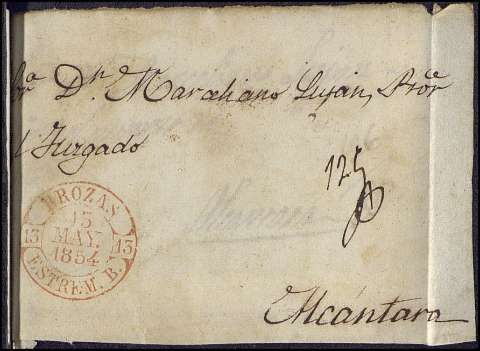 Dn. Marceliano Luján, Pror
Juzgado
125
BROZAS
13
MAY.
1854
13
13
ESTREM. B.
Alcántara